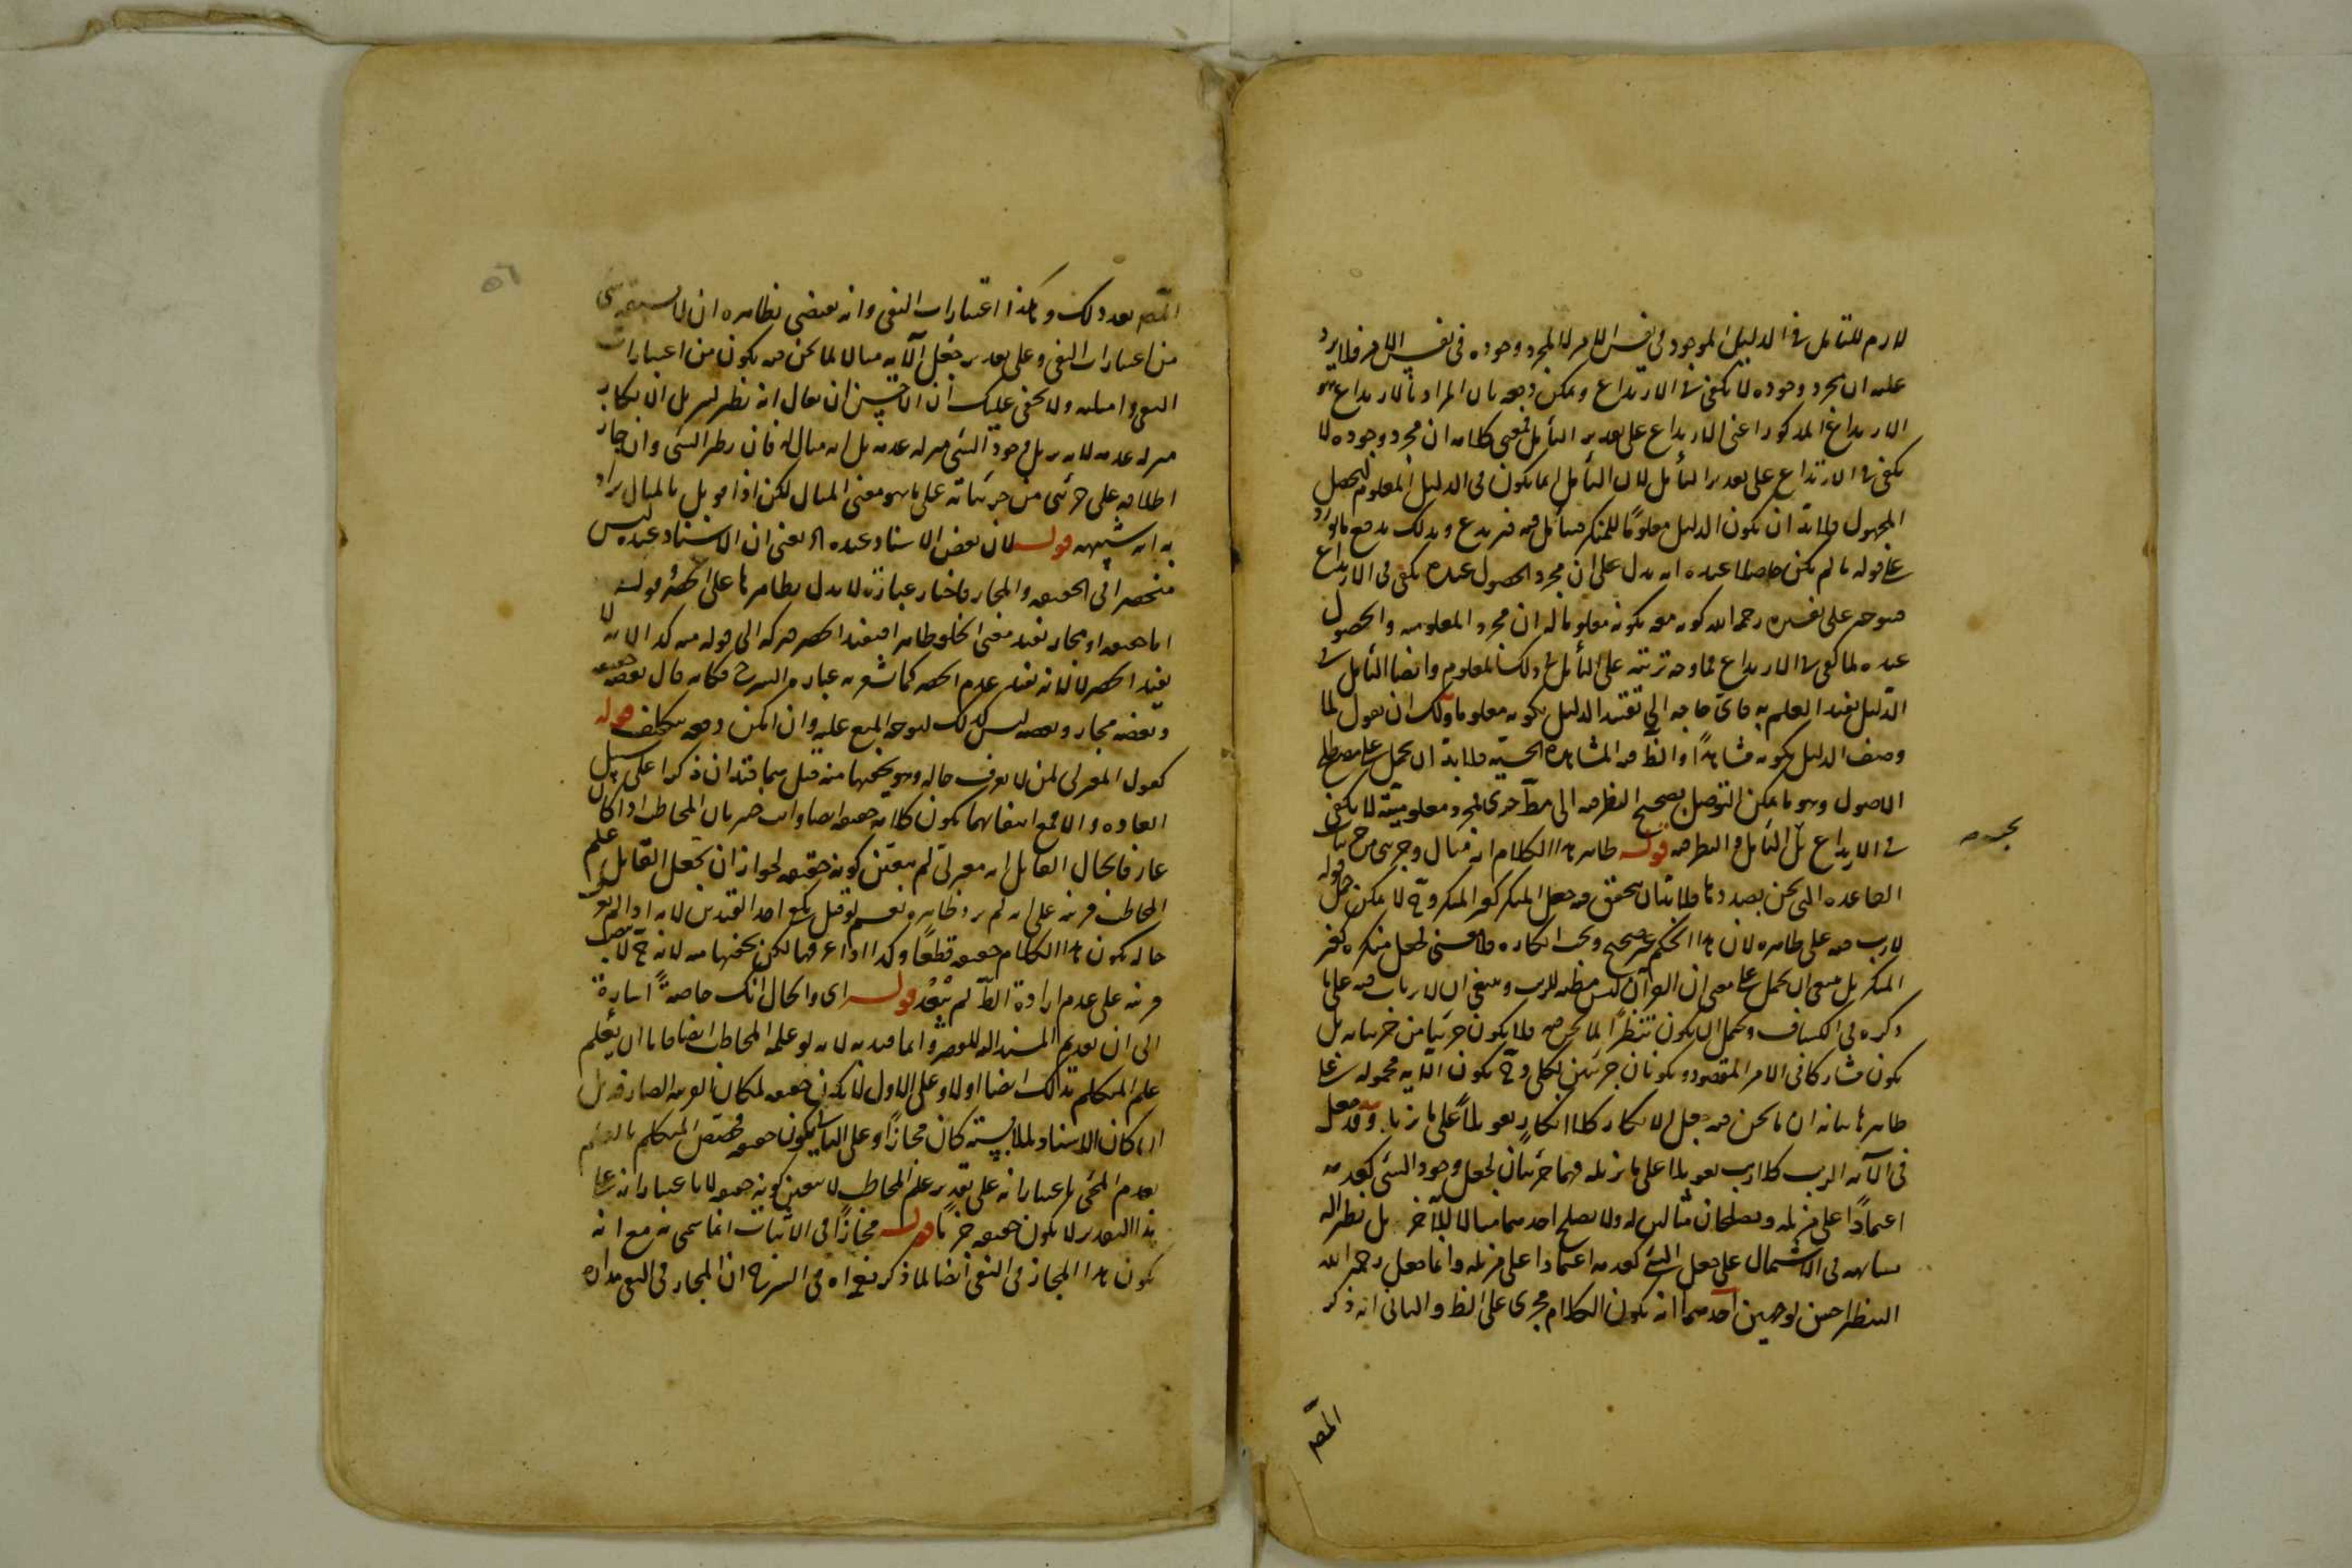 لازم للتأمل في الدليل الموجود في نفس الامر لا لمجرد وجوده في نفس الامر فلا يرد
عليه ان مجرد وجوده لا يكفى في الارتداع ويمكن دفعه بان المراد بالارتداع هو
الارتداع المذكور اعنى الارتداع على تقدير التأمل فمعنى كلامه ان مجرد وجوده لا
يكفى في الارتداع على تقدير التأمل لان التأمل انما يكون في الدليل المعلوم لتحصيل
المجهول فلابد ان يكون الدليل معلوما للمنكر فيتأمل فيه فيرتدع وبذلك يندفع ما يورد
على قوله ما لم يكن حاصلا عنده انه يدل على ان مجرد الحصول عنده يكفى في الارتداع
متوجه على تفسيره رحمه الله كونه معه بكونه معلوما له ان مجرد المعلومية والحصول
عنده لما كفى في الارتداع فما وجه ترتبه على التأمل في ذلك المعلوم وايضا التأمل في
الدليل يفيد العلم به فاى حاجة الى تقييد الدليل بكونه معلوما ولك ان تقول لما
وصف الدليل بكونه مشاهدا والظ منه المشاهدة الحسية فلابد ان يحمل على مصطلح
الاصول وهو ما يمكن التوصل بصحيح النظر فيه الى مط خبرى فمجرد معلوميته لا يكفى
في الارتداع بل التأمل والنظر فيه قوله ظاهر هذا الكلام انه مثال وجزئى من جزئيات
القاعدة التى نحن بصددها فلابد ان يتحقق فيه جعل المنكر كغير المنكر وح لا يمكن حمل قوله
لاريب فيه على ظاهره لان هذا الحكم غير صحيح ويجب انكاره فلا معنى لجعل منكره كغير
المنكر بل ينبغى ان يحمل على معنى ان القرآن ليس مظنة للريب وينبغى ان لا يرتاب فيه على ما
ذكره في الكشاف ويحتمل ان يكون تنظيرا لما نحن فيه فلا يكون جزئيا من جزئياته بل
يكون مشاركا في الامر المقصود ويكونان جزئيين لكلى وح يكون الآية محمولة على
ظاهرها بيانه ان ما نحن فيه جعل الانكار كلا انكار تعويلا على ما يزيله وقد جعل
في الآية الريب كلا ريب تعويلا على ما يزيله فهما جزئيان لجعل وجود الشئ كعدمه
اعتمادا على مزيله ويصلحان مثالين له ولا يصلح احدهما مثالا للآخر بل نظير اله
يشابهه في الاشتمال على جعل الشئ كعدمه اعتمادا على مزيله وانما جعل رحمه الله
التنظير احسن لوجهين احدهما انه يكون الكلام مجرى على الظ والثانى انه ذكر
المص
المص بعد ذلك وهكذا اعتبارات النفى وانه يقتضى بظاهره ان لا يسبقه شئ
من اعتبارات النفى وعلى تقدير جعل الآية مثالا لما نحن فيه يكون من اعتبارات
النفى وامثلته ولا يخفى عليك ان الاحسن ان يقال انه نظير لتنزيل الانكار
منزلة عدمه لا لتنزيل وجود الشئ منزلة عدمه بل انه مثال له فان نظير الشئ وان جاز
اطلاقه على جزئى من جزئياته على ما هو معنى المثال لكن اذا قوبل بالمثال يراد
به انه شبيهه قوله لان بعض الاسناد عنده اه يعنى ان الاسناد عنده ليس
منحصرا في الحقيقة والمجاز فاختار عبارة لا يدل بظاهرها على الحصر وقوله
اما حقيقة او مجاز يفيد منع الخلو ظاهرا فيفيد الحصر فتركه الى قوله منه كذا لانه لا
يفيد الحصر لا لانه يفيد عدم الحصر كما يشعر به عبارة الشرح فكانه قال بعضه حقيقة
وبعضه مجاز وبعضه ليس كذلك ليتوجه المنع عليه وان امكن دفعه بتكلف قوله
كقول المعتزلى لمن لا يعرف حاله وهو يخفيها منه قيل هما قيدان ذكرا على سبيل
العادة والا فمع انتفائهما يكون كلامه حقيقة ايضا وانت خبير بان المخاطب اذا كان
عارفا بحال القائل انه معتزلى لم يتعين كونه حقيقة لجواز ان يجعل القائل علم
المخاطب قرينة على انه لم يرد ظاهره نعم لو قيل يكفى احد القيدين لانه اذا لم يعرف
حاله يكون هذا الكلام حقيقة قطعا وكذا اذا عرفها لكن يخفيها منه لانه ح لا ينصب
قرينة على عدم ارادة الظ لم يبعد قوله اى والحال انك خاصة اشارة
الى ان تقديم المسند اليه للحصر وانما قيد به لانه لو علمه المخاطب ايضا فاما ان يعلم
علم المتكلم بذلك ايضا او لا وعلى الاول لا يكون حقيقة لمكان القرينة الصارفة بل
ان كان الاسناد لملابسة كان مجازا وعلى الثانى يكون حقيقة فيختص المتكلم بالعلم
بعدم المجئ باعتبار انه على تقدير علم المخاطب لا يتعين كونه حقيقة لا باعتبار انه على
هذا التقدير لا يكون حقيقة جزما قوله مجازا في الاثبات انما سمى به مع انه
يكون هذا المجاز في النفى ايضا لما ذكره في الشرح ان المجاز في النفى مداره